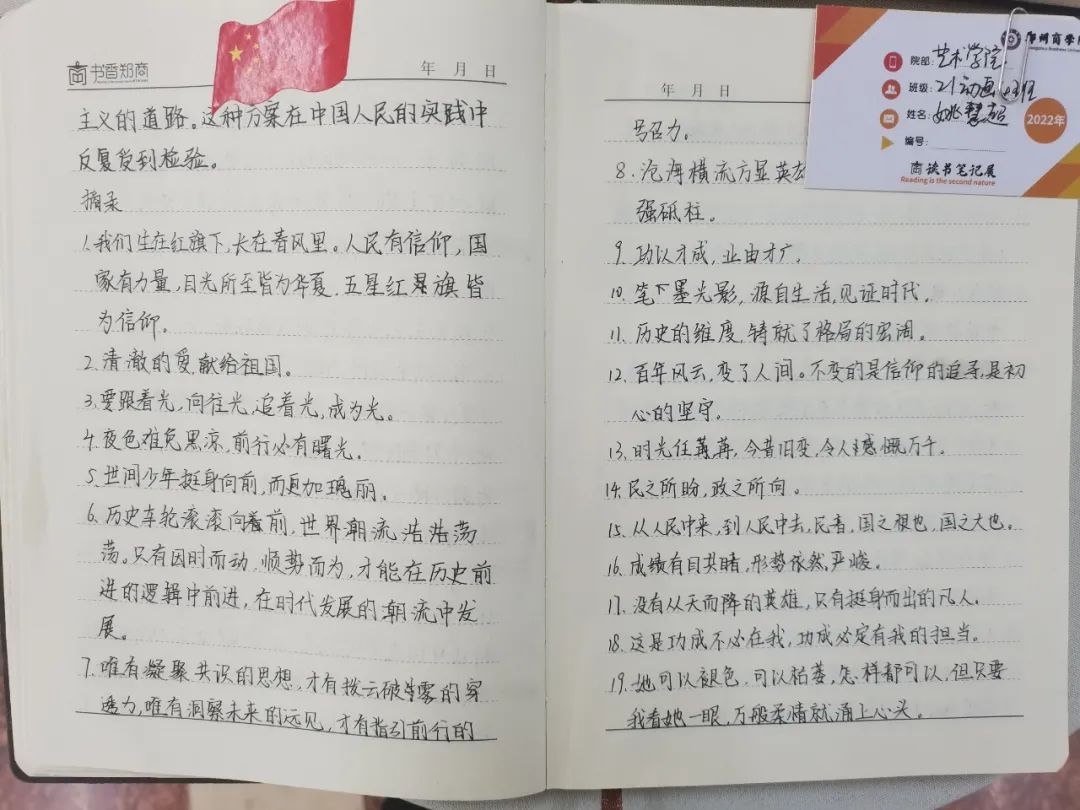 书香郑商
年 月 日
主义的道路。这种方案在中国人民的实践中
反复受到检验。
摘录
1.我们生在红旗下,长在春风里。人民有信仰,国
家有力量,目光所至皆为华夏,五星红旗皆
为信仰。
2.清澈的爱,献给祖国。
3.要跟着光,向往光,追着光,成为光。
4.夜色难免黑凉,前行必有曙光。
5.世间少年挺身向前,而更加瑰丽。
6.历史车轮滚滚向前,世界潮流浩浩荡
荡。只有因时而动,顺势而为,才能在历史前
进的逻辑中前进,在时代发展的潮流中发
展。
7.唯有凝聚共识的思想,才有拨云破雾的穿
透力,唯有洞察未来的远见,才有指引前行的
年 月 日
号召力。
8.沧海横流方显英雄
强砥柱。
9.功以才成,业由才广。
10.笔下墨光影,源自生活,见证时代。
11.历史的维度,铸就了格局的宏阔。
12.百年风云,变了人间。不变的是信仰的追寻,是初
心的坚守。
13.时光任苒苒,今昔旧变,令人感慨万千。
14.民之所盼,政之所向。
15.从人民中来,到人民中去,民者,国之根也,国之大也。
16.成绩有目共睹,形势依然严峻。
17.没有从天而降的英雄,只有挺身而出的凡人。
18.这是功成不必在我,功成必定有我的担当。
19.她可以褪色,可以枯萎,怎样都可以,但只要
我看她一眼,万般柔情就涌上心头。
郑州商学院
院部:艺术学院
班级:21动画
姓名:姚慧超
编号:
2022年
读书笔记展
Reading is the second nature